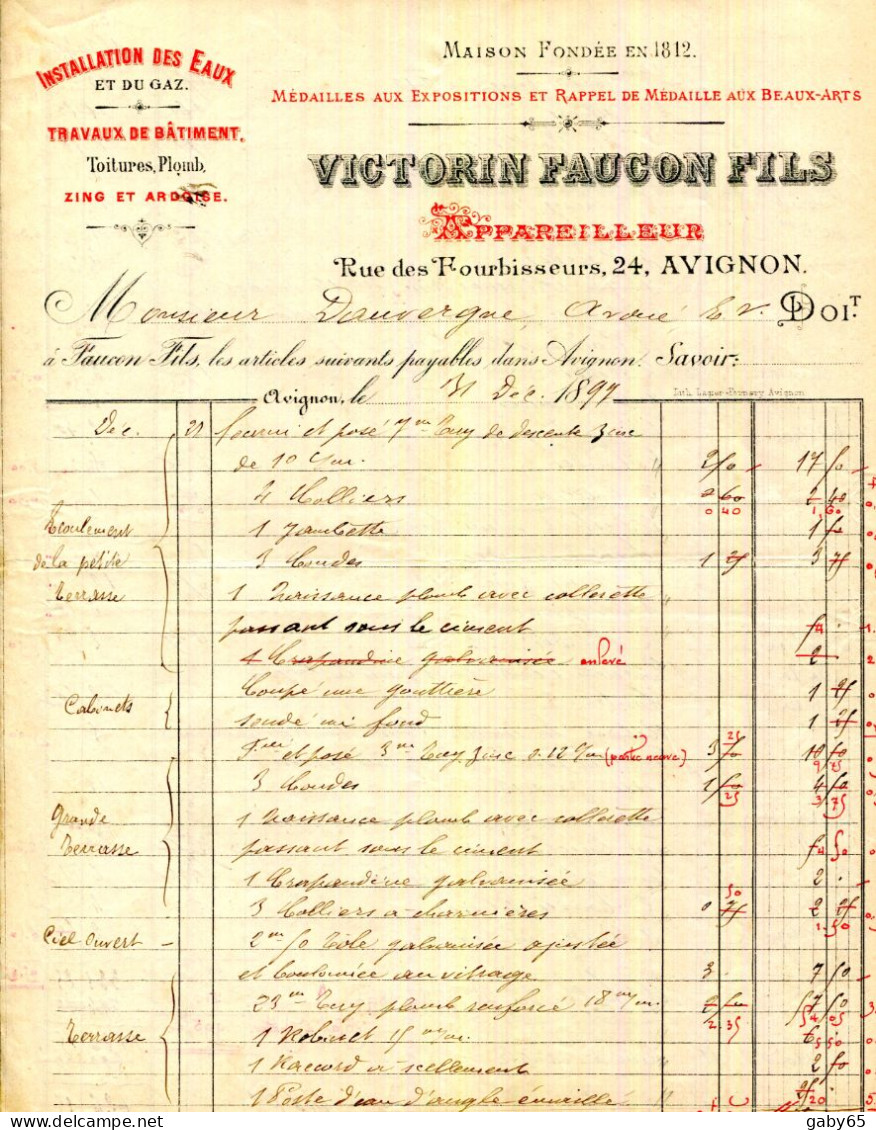 INSTALLATION DES EAUX
ET DU GAZ.
TRAVAUX DE BÂTIMENT,
Toitures, Plomb,
ZING ET ARDOISE.
MAISON FONDÉE EN 1812.
MÉDAILLES AUX EXPOSITIONS ET RAPPEL DE MÉDAILLE AUX BEAUX-ARTS
VICTORIN FAUCON FILS
APPAREILLEUR
Rue des Fourbisseurs, 24, AVIGNON.
Monsieur Dauvergne, Avoué DOIT
à Faucon Fils, les articles suivants payables dans Avignon. Savoir:
Avignon, le 31 Déc. 1897
Dec. fourni et posé 7m Tuy de descente Zinc
de 10 c/m. 2 50 17 50
4 Colliers 0 60 2 40
0 40 1,60
Ecoulement 1 Jambette 1
de la petite 3 Coudes 1 25 3 75
terrasse 1 Naissance plomb avec collerette
passant sous le ciment
1 Crapaudine galvanisée enlevé 2
Cabinets Coupé une gouttière 1 25
soudé un fond 1
et posé 3m Tuy Zinc 12 c/m (partie neuve) 3 50 10 50
25 9 75
3 Coudes 1 50 4 50
25 3 75
Grande 1 Naissance plomb avec collerette
Terrasse passant sous le ciment
1 Crapaudine galvanisée 2
3 Colliers a charnières 0 75 2 25
50 1 50
Ciel Ouvert 2m 50 Tôle galvanisée ajustée
et boulonnée au vitrage 3 7 50
23m Tuy plomb renforcé 18 m/m. 2 50 57 50
2 35 54 05
Terrasse 1 Robinet 15 m/m.
1 Raccord a scellement 2 50
1 Poste d'eau d'angle émaillé
gaby65